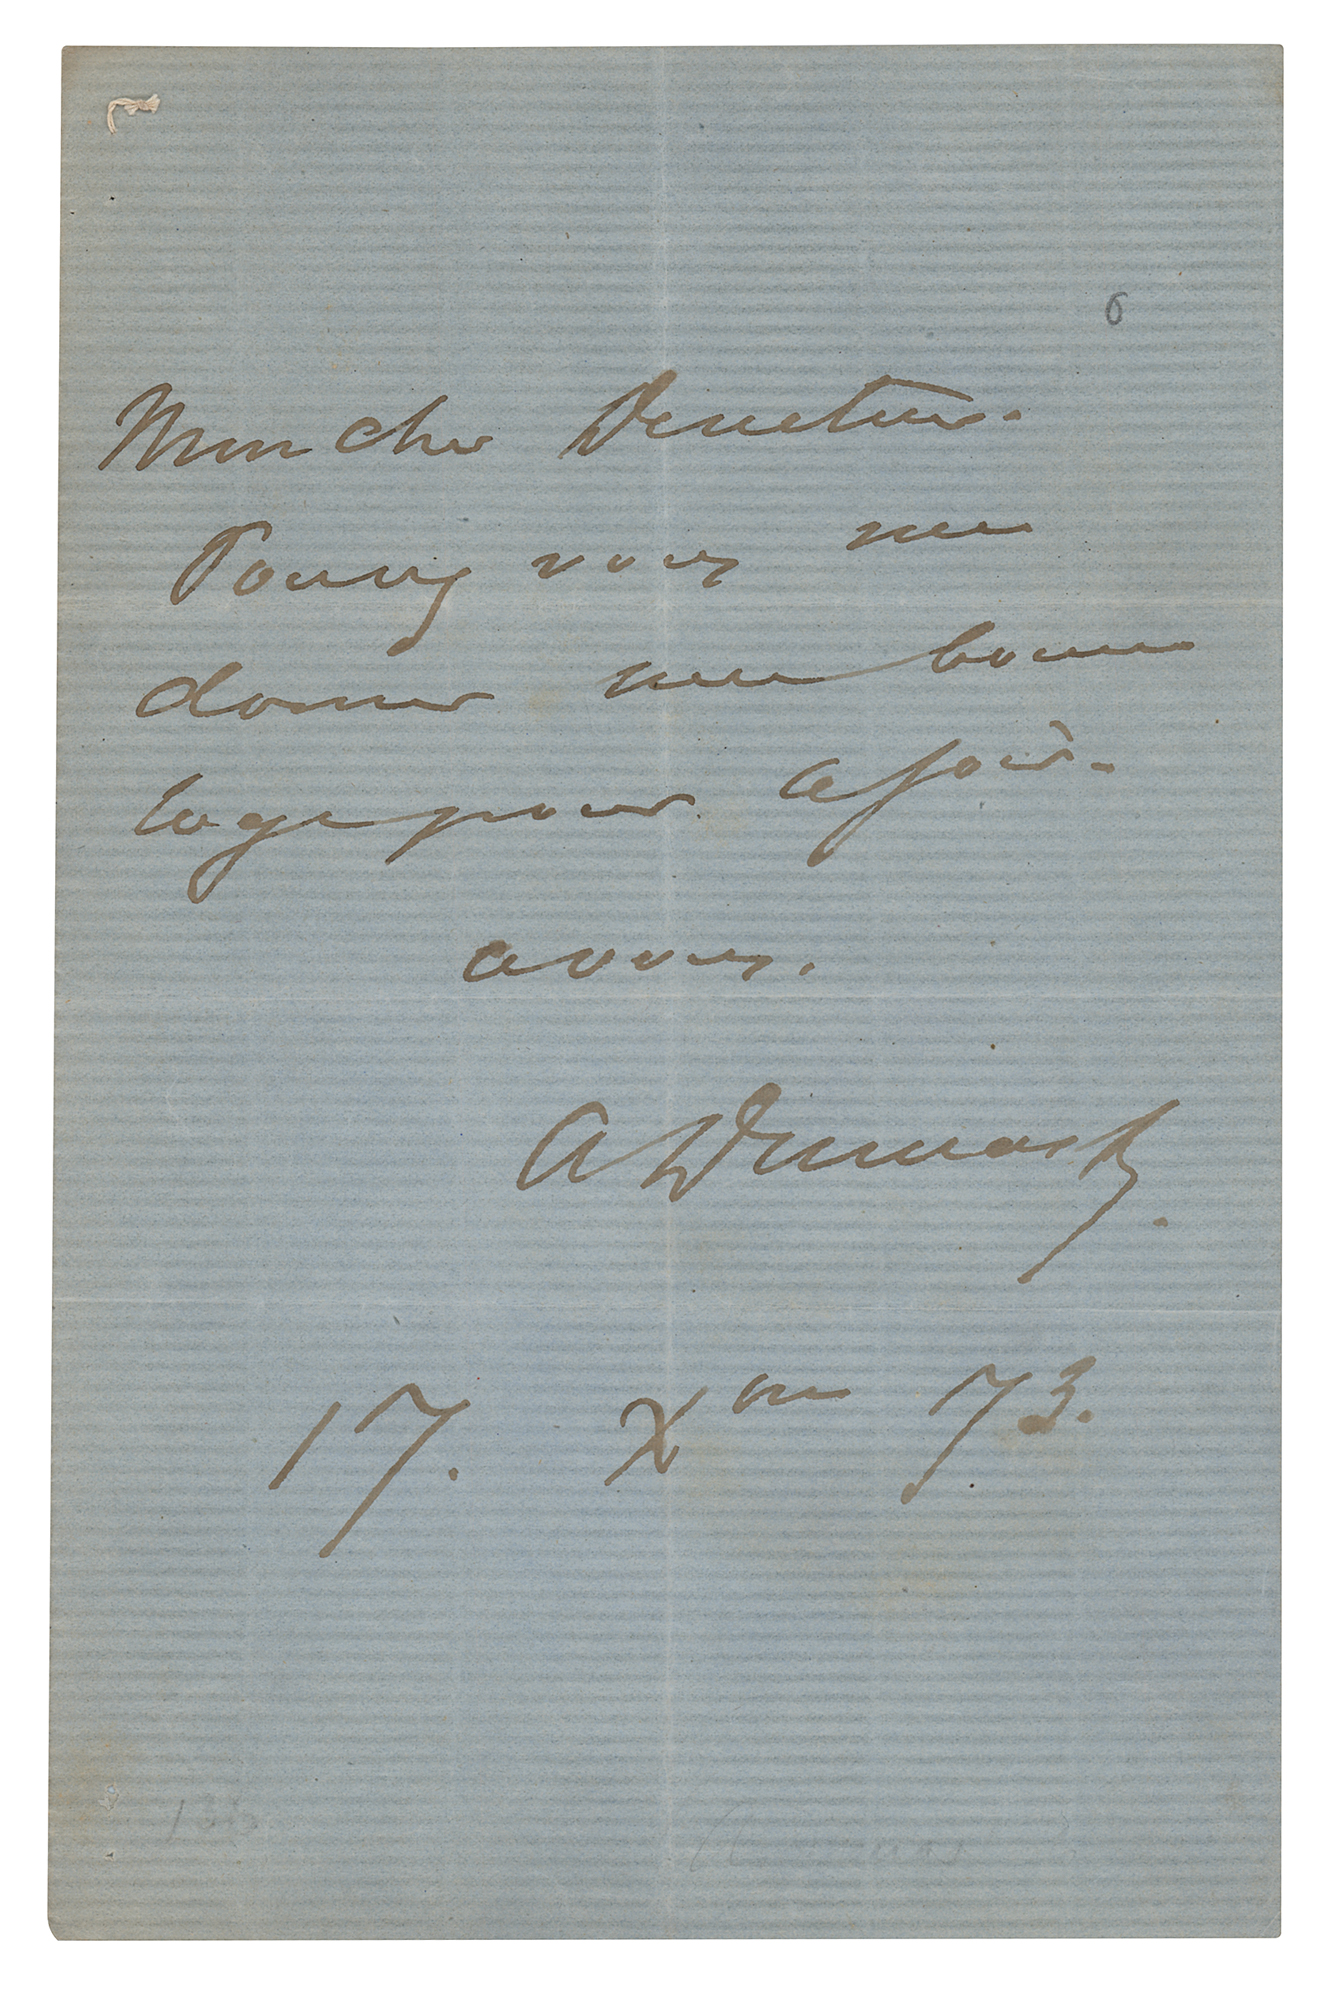 6
Mon cher Directeur.
Pouvez vous me
donner une bonne
loge pour ce soir.
a vous.
A Dumas f.
17. Xbre 73.